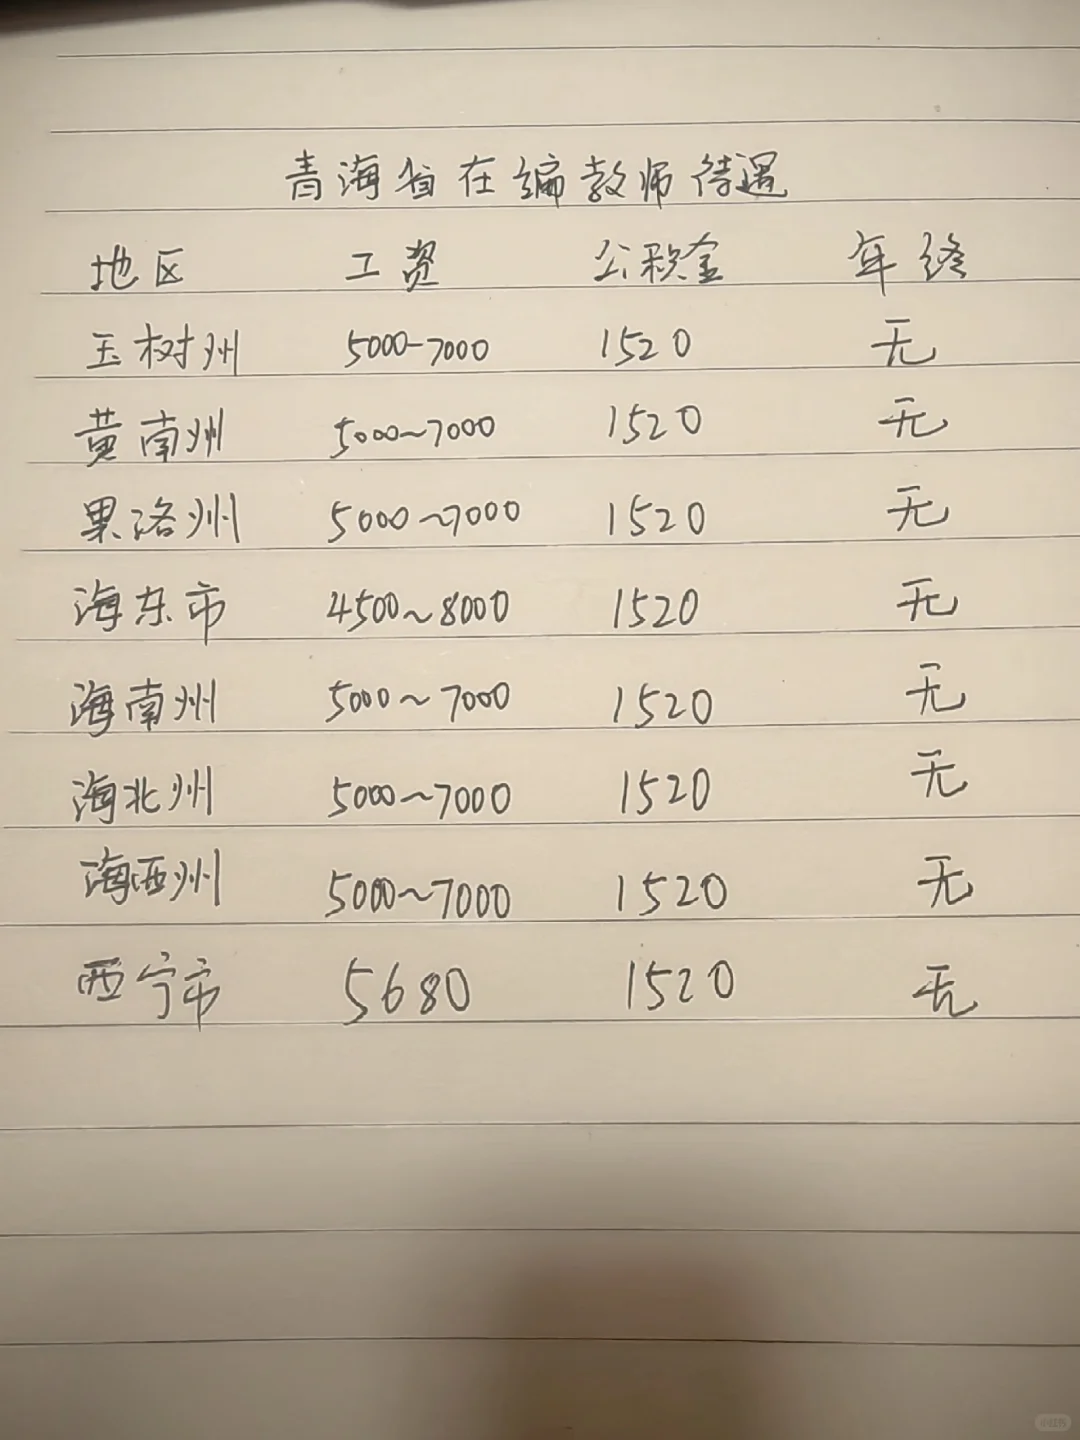 青海省在编教师待遇
地区 工资 公积金 年终
玉树州 5000-7000 1520 无
黄南州 5000~7000 1520 无
果洛州 5000~7000 1520 无
海东市 4500~8000 1520 无
海南州 5000~7000 1520 无
海北州 5000~7000 1520 无
海西州 5000~7000 1520 无
西宁市 5680 1520 无
小红书